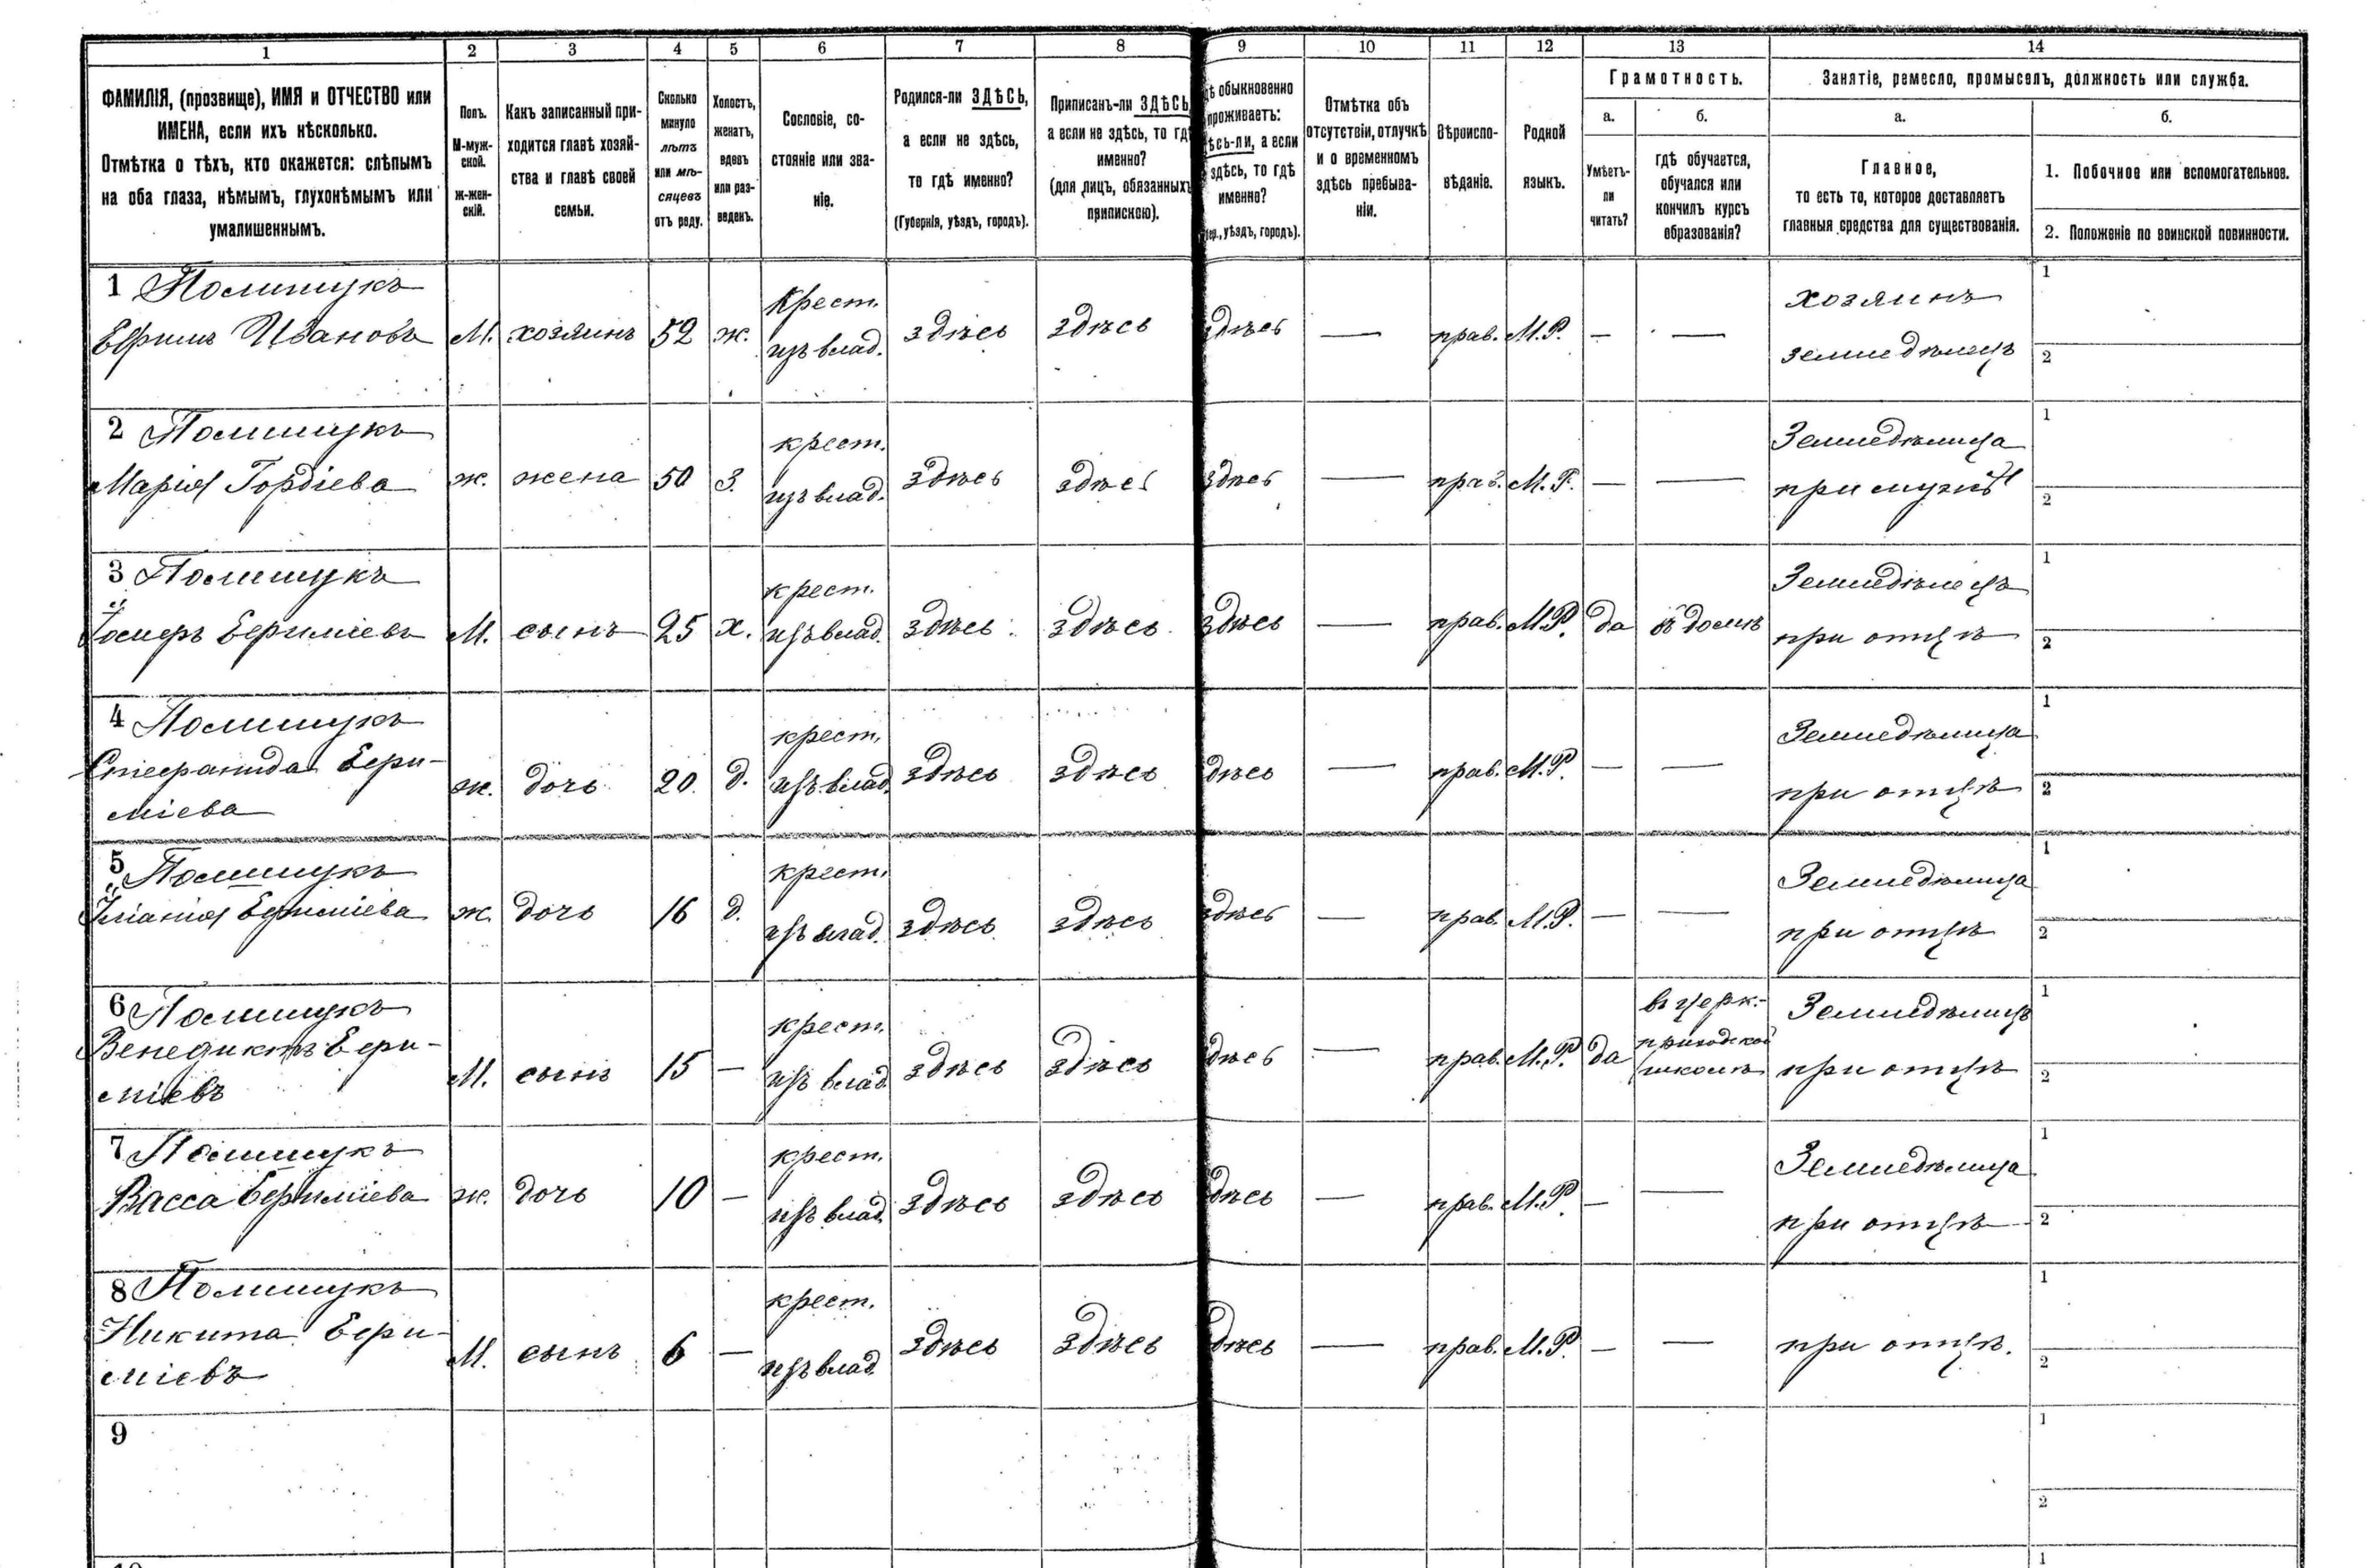 1 2 3 4 5 6 7 8 9 10 11 12 13 14
ФАМИЛІЯ, (прозвище), ИМЯ и ОТЧЕСТВО или
ИМЕНА, если ихъ нѣсколько.
Отмѣтка о тѣхъ, кто окажется: слѣпымъ
на оба глаза, нѣмымъ, глухонѣмымъ или
умалишеннымъ.
Полъ.
М-муж-
ской.
Ж-жен-
скій.
Какъ записанный при-
ходится главѣ хозяй-
ства и главѣ своей
семьи.
Сколько
минуло
лѣтъ
или мѣ-
сяцевъ
отъ роду.
Холостъ,
женатъ,
вдовъ
или раз-
веденъ.
Сословіе, со-
стояніе или зва-
ніе.
Родился-ли ЗДѢСЬ,
а если не здѣсь,
то гдѣ именно?
(Губернія, уѣздъ, городъ).
Приписанъ-ли ЗДѢСЬ
а если не здѣсь, то гдѣ
именно?
(для лицъ, обязанныхъ
припискою).
обыкновенно
проживаетъ:
а если
здѣсь, то гдѣ
именно?
уѣздъ, городъ).
Отмѣтка объ
отсутствіи, отлучкѣ
и о временномъ
здѣсь пребыва-
ніи.
Вѣроиспо-
вѣданіе.
Родной
языкъ.
Грамотность.
а.
Умѣетъ-
ли
читать?
б.
гдѣ обучается,
обучался или
кончилъ курсъ
образованія?
Занятіе, ремесло, промыселъ, должность или служба.
а.
Главное,
то есть то, которое доставляетъ
главныя средства для существованія.
б.
1. Побочное или вспомогательное.
2. Положеніе по воинской повинности.
1 Полищукъ
Ефимъ Ивановъ
М.
хозяинъ
52
ж.
Крест.
изъ влад.
здѣсь
здѣсь
здѣсь
—
прав.
М.Р.
—
—
хозяинъ
земледѣлецъ
1
2
2 Полищукъ
Марія Гордіева
ж.
жена
50
З.
крест.
изъ влад.
здѣсь
здѣсь
здѣсь
—
прав.
М.Р.
—
—
Земледѣлица
при мужѣ
1
2
3 Полищукъ
Іосифъ Ефиміевъ
М.
сынъ
25
х.
крест.
изъ влад.
здѣсь
здѣсь
здѣсь
—
прав.
М.Р.
да
въ домѣ
Земледѣлецъ
при отцѣ
1
2
4 Полищукъ
Стефанида Ефи-
міева
ж.
дочь
20
д.
крест.
изъ влад.
здѣсь
здѣсь
здѣсь
—
прав.
М.Р.
—
—
Земледѣлица
при отцѣ
1
2
5 Полищукъ
Ефиміева
ж.
дочь
16
д.
крест.
изъ влад.
здѣсь
здѣсь
здѣсь
—
прав.
М.Р.
—
—
Земледѣлица
при отцѣ
1
2
6 Полищукъ
Венедиктъ Ефи-
міевъ
М.
сынъ
15
—
крест.
изъ влад.
здѣсь
здѣсь
здѣсь
—
прав.
М.Р.
да
въ церк.-
приходской
школѣ
Земледѣлецъ
при отцѣ
1
2
7 Полищукъ
Васса Ефиміева
ж.
дочь
10
—
крест.
изъ влад.
здѣсь
здѣсь
здѣсь
—
прав.
М.Р.
—
—
Земледѣлица
при отцѣ
1
2
8 Полищукъ
Никита Ефи-
міевъ
М.
сынъ
6
—
крест.
изъ влад.
здѣсь
здѣсь
здѣсь
—
прав.
М.Р.
—
—
при отцѣ.
1
2
9
1
2
1